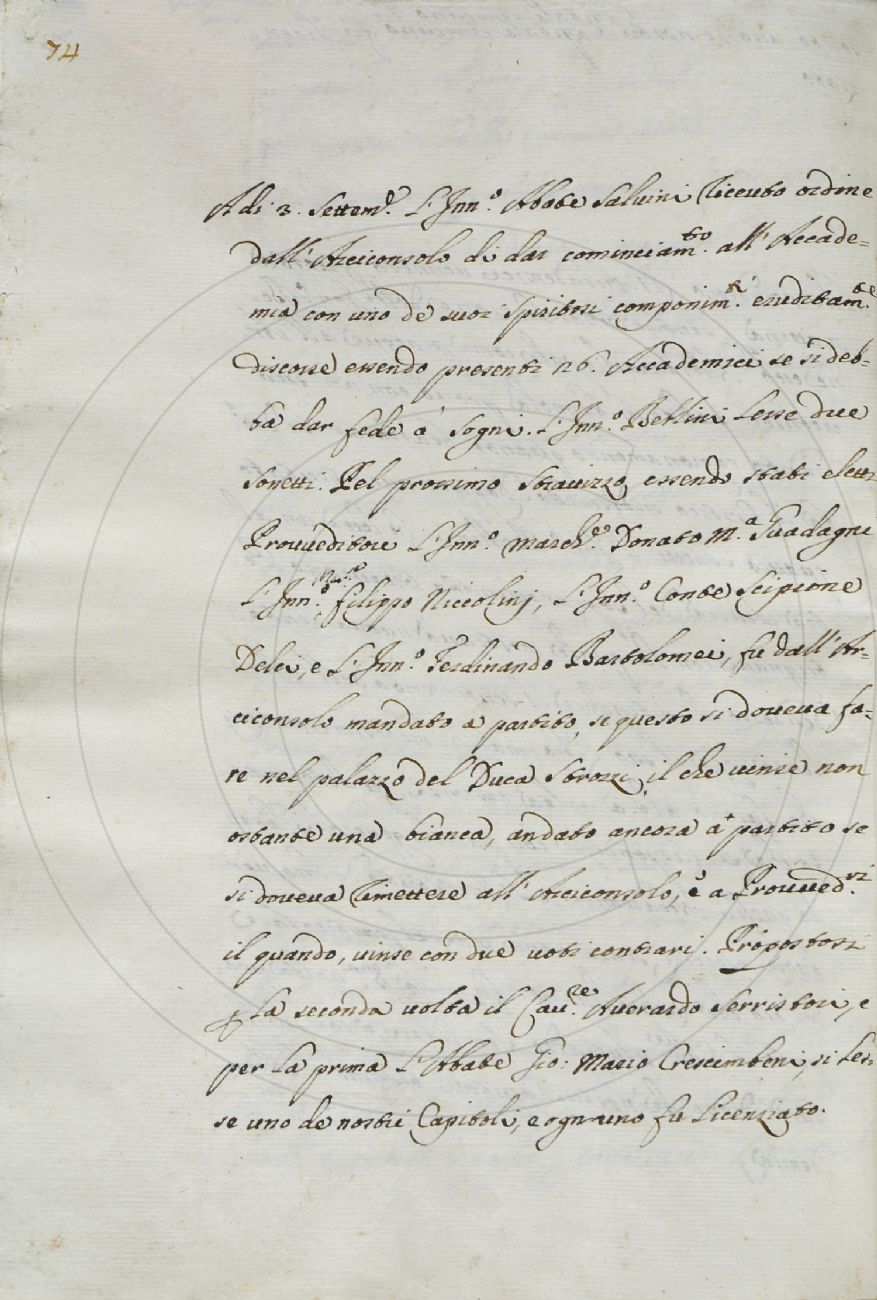 74
A di 3. Settem.e L'Inn.o Abate Salvini riceuto ordine
dall' Arciconsolo di dar cominciam.to all' Accade=
mia con uno de suoi spiritosi componim.ti eruditam.te
discorse essendo presenti 26. Accademici se si deb=
ba dar fede a' sogni. L'Inn.o Bellini lesse due
sonetti. Pel prossimo stravizzo essendo stati eletti
Provveditori L'Inn.o March.e Donato M.a Guadagni
L'Inn.o Mar.e Filippo Niccolinj, L'Inn.o Conte Scipione
Delci, e L'Inn.o Ferdinando Bartolomei, fu dall' Ar=
ciconsolo mandato a partito, se questo si doveva fa=
re nel palazzo del Duca Strozzi, il che vinse non
ostante una bianca, andato ancora a' partito se
si doveva rimettere all' Arciconsolo, e a Provved.ri
il quando, vinse con due voti contrarj. Propostosi
p la seconda volta il Cav.re Averardo Serristori, e
per la prima L'Abate Gio: Mario Crescimbeni, si les=
se uno de nostri Capitoli, e ognuno fu licenziato.